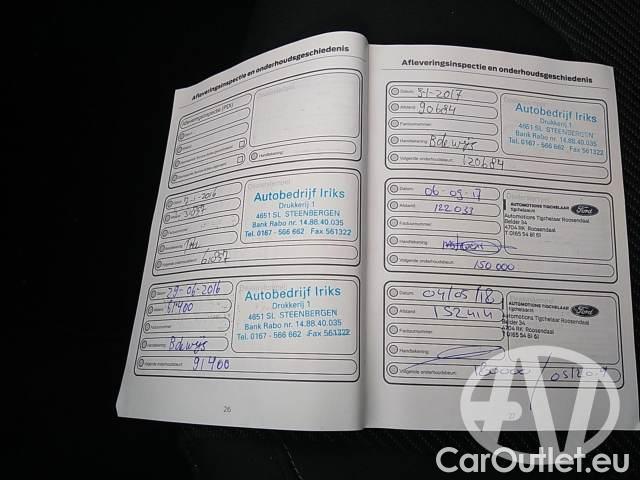 Afleveringsinspectie en onderhoudsgeschiedenis
Afleveringsinspectie (PDI)
Handtekening:
Datum:
-1-2016
Autobedrijf Iriks
Drukkerij 1
4651 SL STEENBERGEN
Bank Rabo nr. 14.88.40.035
Tel. 0167 - 566 662 Fax 561322
Volgende onderhoudsbeurt:
Datum: 29-06-2016
Afstand: 61400
Factuurnummer:
Handtekening: B de wijs
Volgende onderhoudsbeurt: 91400
Autobedrijf Iriks
Drukkerij 1
4651 SL STEENBERGEN
Bank Rabo nr. 14.88.40.035
Tel. 0167 - 566 662 Fax 561322
26
Afleveringsinspectie en onderhoudsgeschiedenis
Datum: 9-1-2017
Afstand: 90684
Factuurnummer:
Handtekening: B de wijs
Volgende onderhoudsbeurt: 120684
Autobedrijf Iriks
Drukkerij 1
4651 SL STEENBERGEN
Bank Rabo nr. 14.88.40.035
Tel. 0167 - 566 662 Fax 561322
Datum: 06-09-17
Afstand: 122033
Factuurnummer:
Handtekening:
Volgende onderhoudsbeurt: 150 000
AUTOMOTIONS TIGCHELAAR
tigchelaar.nl
Ford
Automotions Tigchelaar Roosendaal
Belder 34
4704 RK Roosendaal
T 0165 54 81 61
Datum: 04/05/18
Afstand: 152414
Factuurnummer:
Handtekening:
Volgende onderhoudsbeurt: 180000
AUTOMOTIONS TIGCHELAAR
tigchelaar.nl
Ford
Automotions Tigchelaar Roosendaal
Belder 34
4704 RK Roosendaal
T 0165 54 81 61
27
CarOutlet.eu